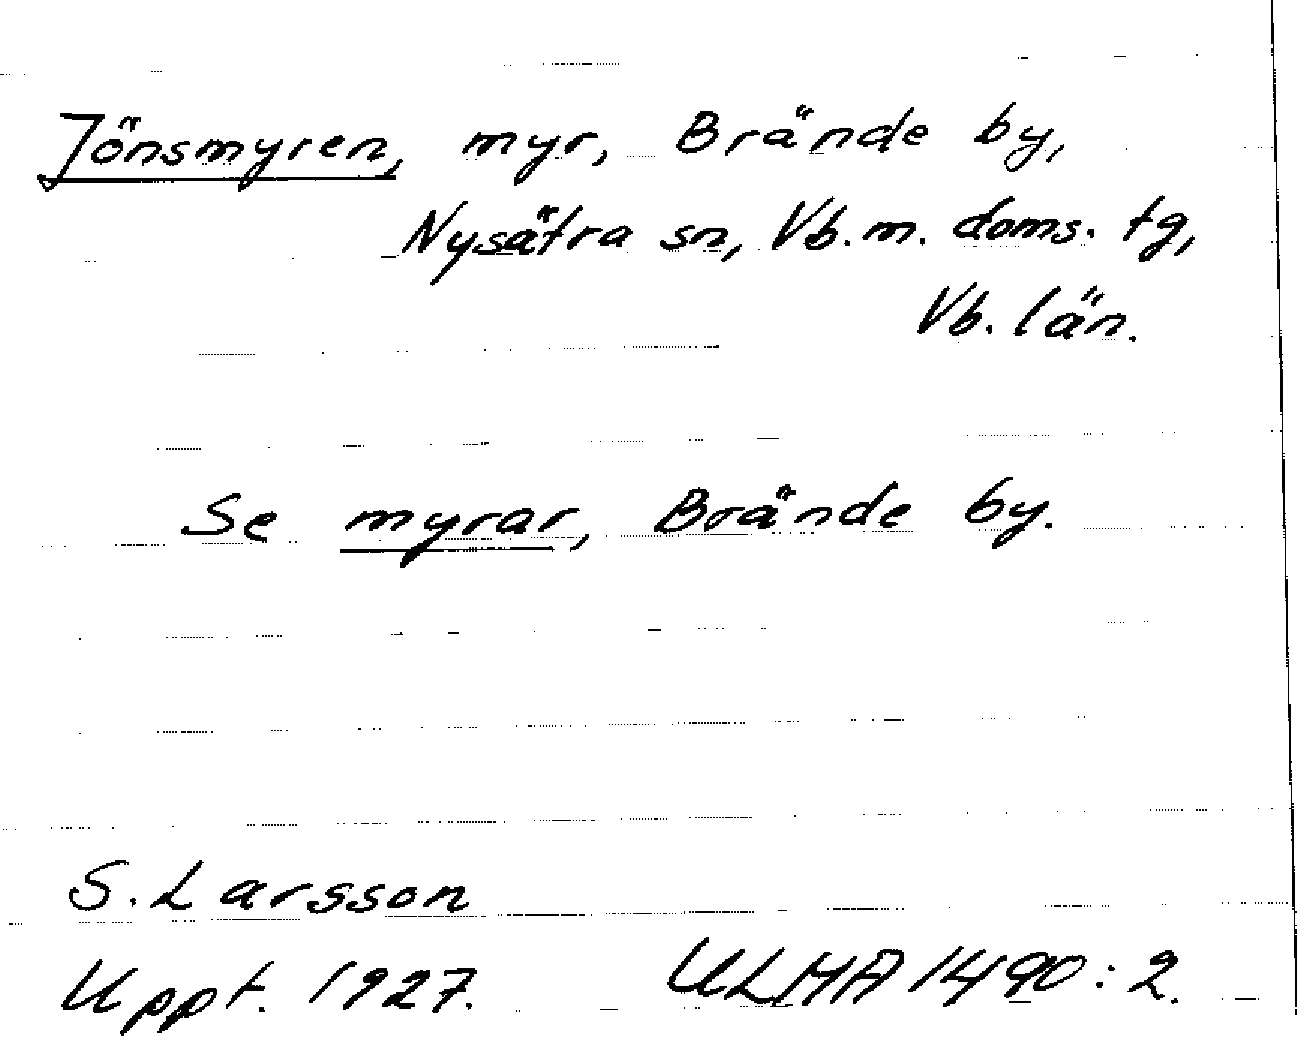 Jönsmyren, myr, Brände by,
Nysätra sn, Vb. m. doms. tg,
Vb. län.
Se myrar, Brände by.
S. Larsson
Uppt. 1927. ULMA 1490:2.